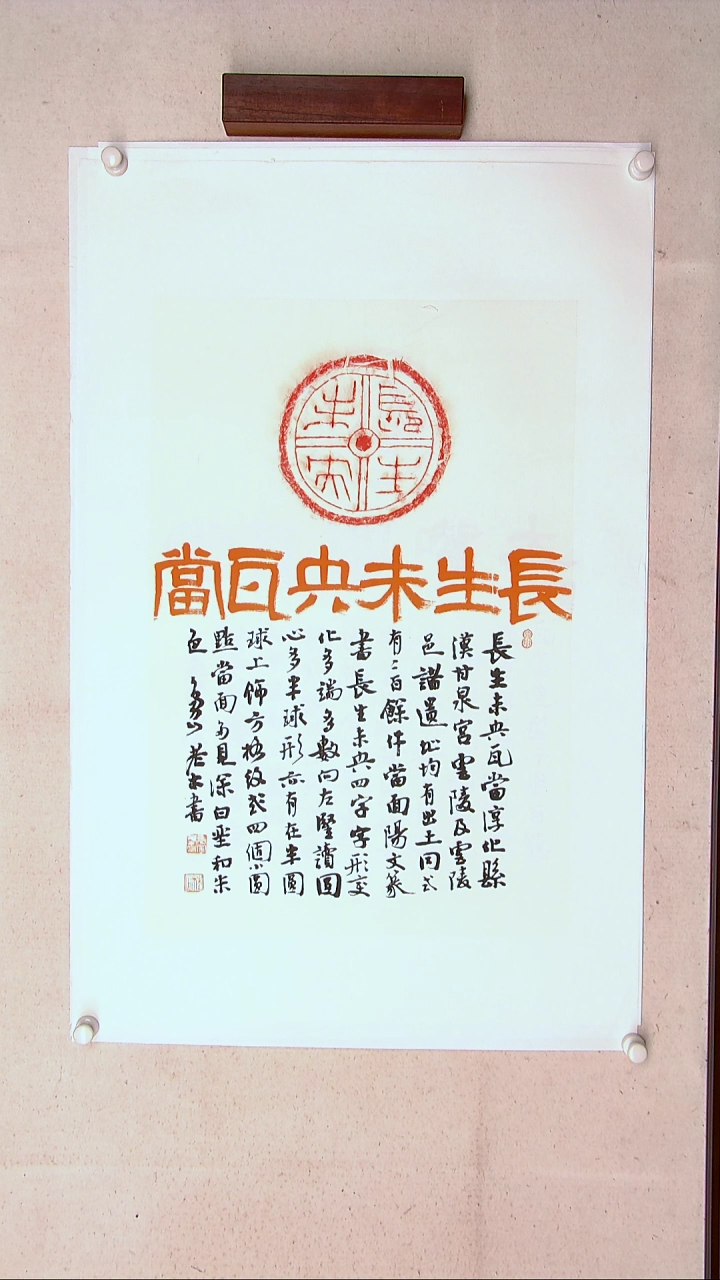 長生
未央
長生未央瓦當
長生未央瓦當淳化縣
漢甘泉宮雲陵及雲陵
邑諸遺址均有出土同式
有二百餘件當面陽文篆
書長生未央四字字形變
化多端多數向左豎讀圓
心多半球形亦有在半圓
球上飾方格紋或四個小圓
點當面可見深白堊和朱
色 書